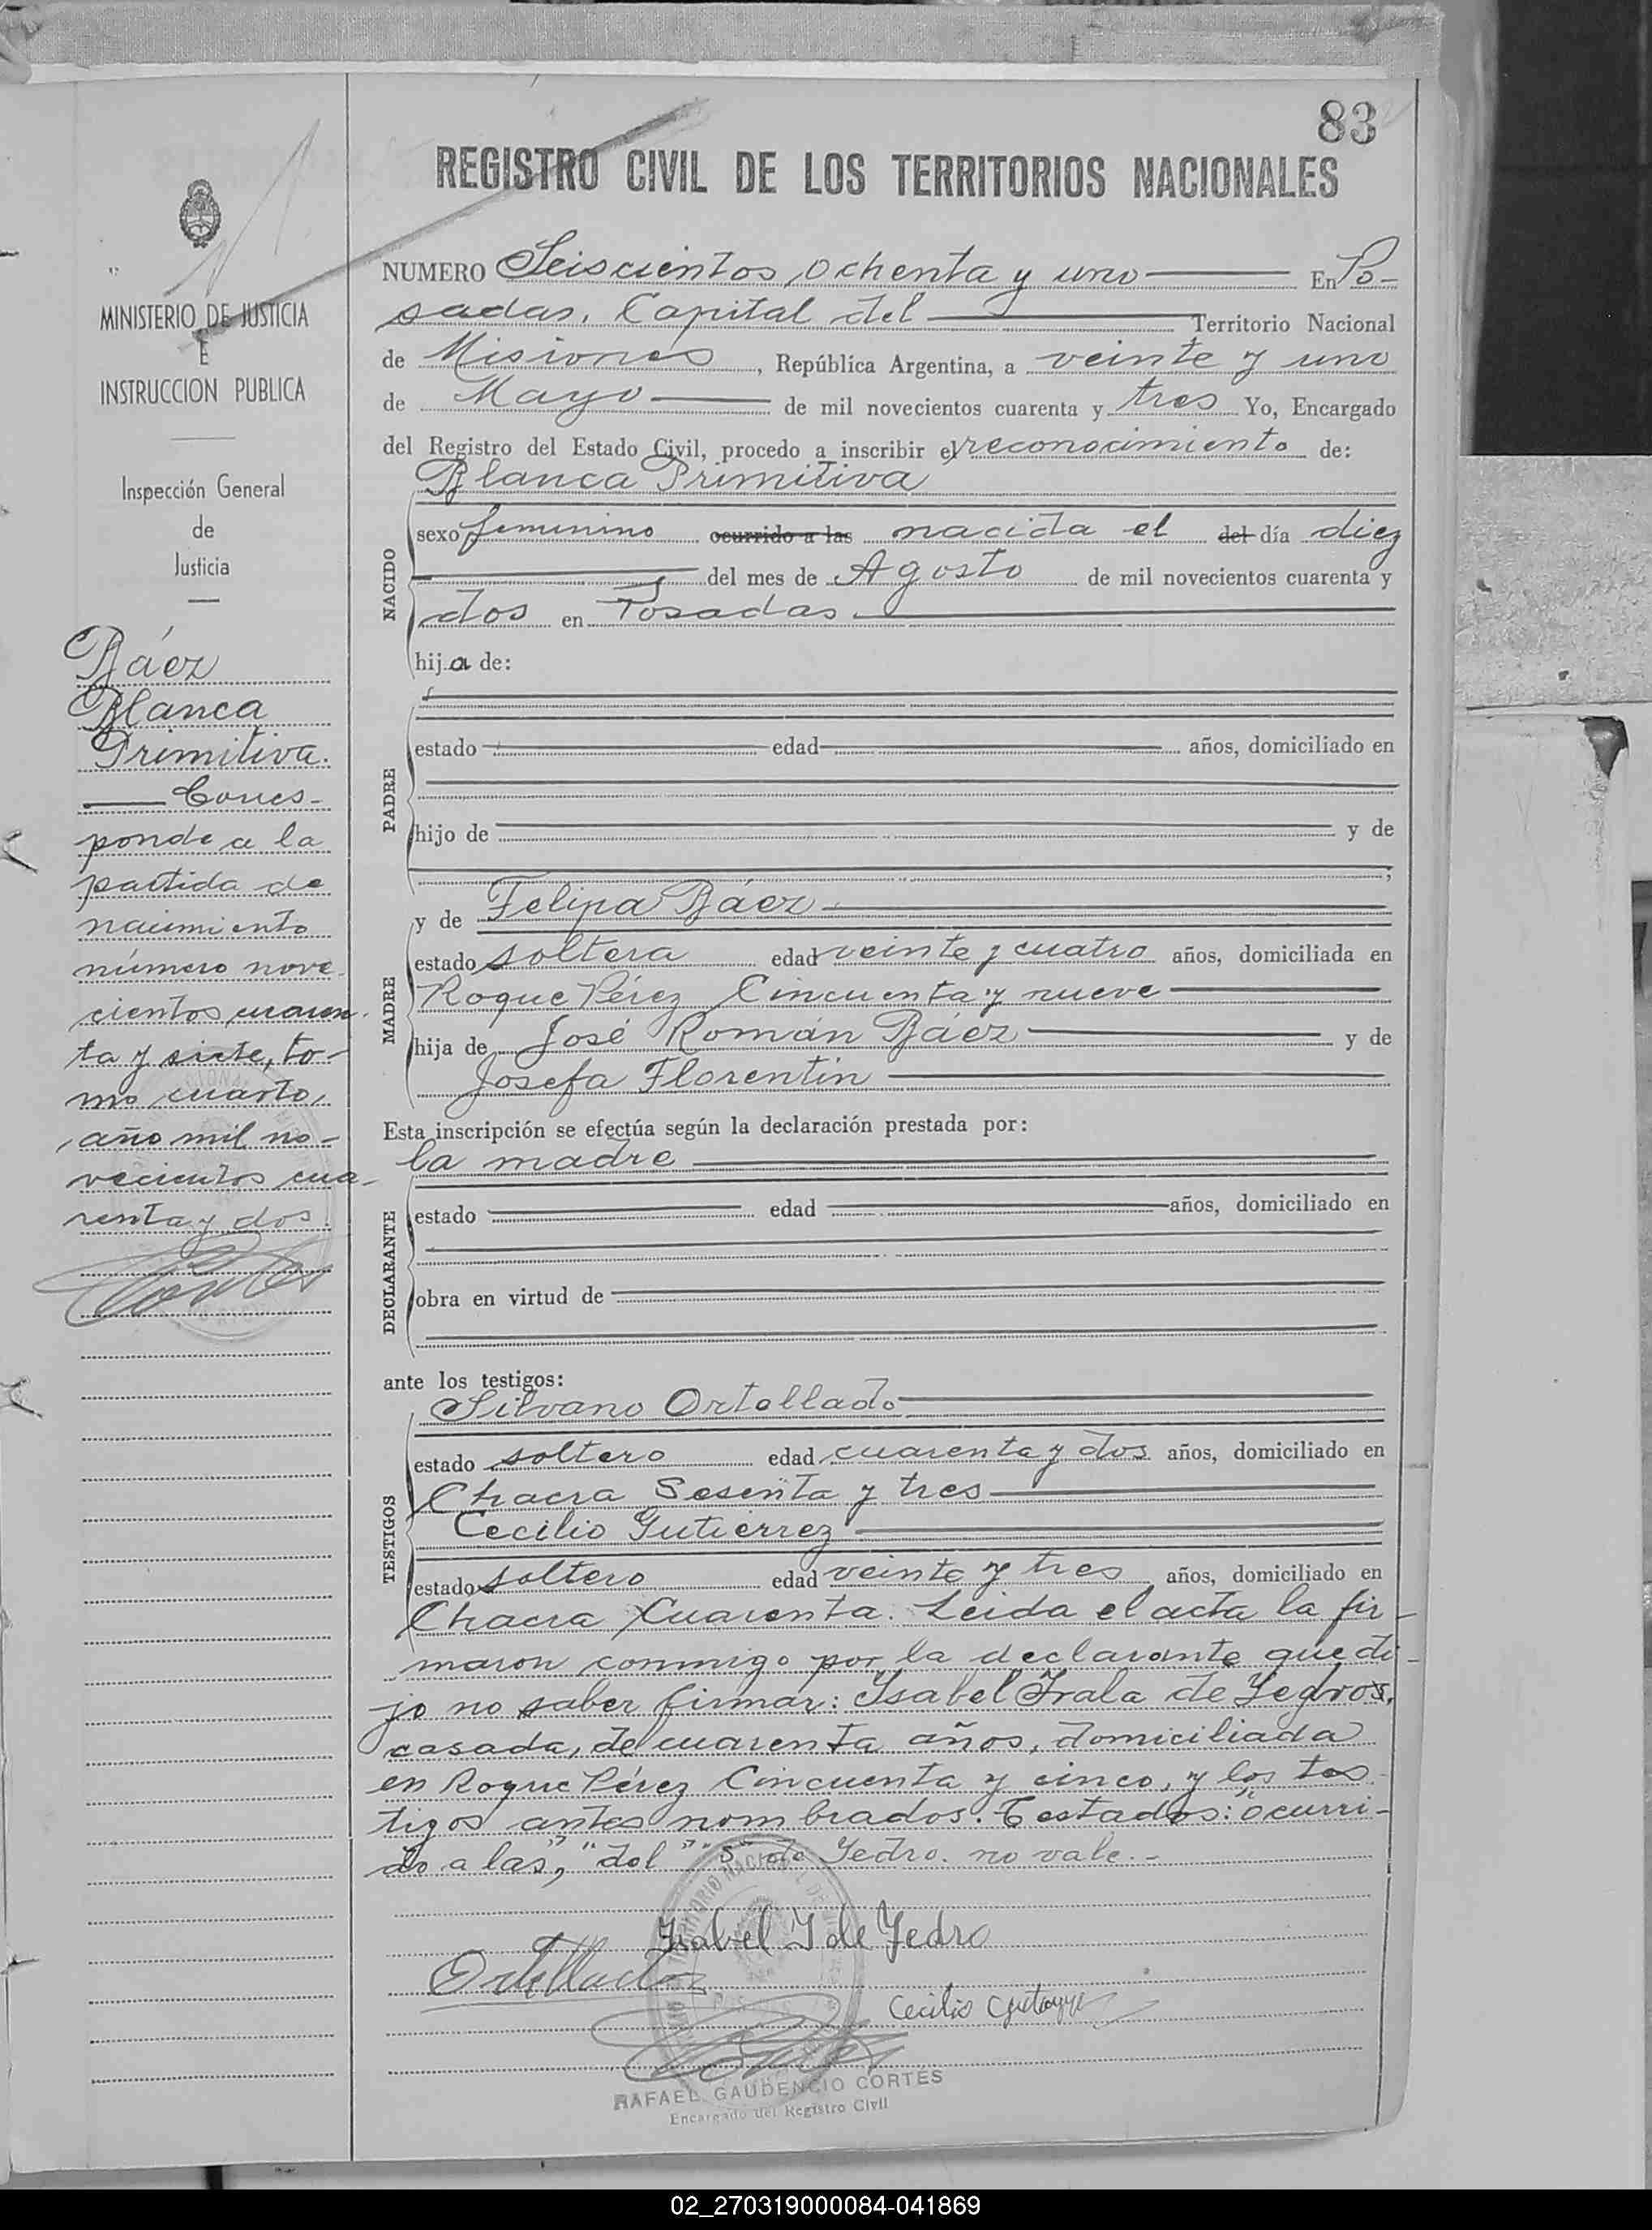 83
REGISTRO CIVIL DE LOS TERRITORIOS NACIONALES
MINISTERIO DE JUSTICIA
E
INSTRUCCION PUBLICA
Inspección General
de
Justicia
Báez
Blanca
Primitiva.
Corres-
ponde a la
partida de
nacimiento
número nove
cientos cuaren
ta y siete, to-
mo cuarto,
año mil no-
vecientos cua-
renta y dos.
NUMERO Seiscientos ochenta y uno En Po-
sadas, Capital del Territorio Nacional
de Misiones, República Argentina, a veinte y uno
de Mayo de mil novecientos cuarenta y tres Yo, Encargado
del Registro del Estado Civil, procedo a inscribir el reconocimiento de:
Blanca Primitiva
NACIDO
sexo femenino ocurrido a las nacida el del día diez
del mes de Agosto de mil novecientos cuarenta y
dos en Posadas
hija de:
PADRE
estado edad años, domiciliado en
hijo de y de
;
MADRE
y de Felipa Báez
estado soltera edad veinte y cuatro años, domiciliada en
Roque Pérez Cincuenta y nueve
hija de José Román Báez y de
Josefa Florentin
Esta inscripción se efectúa según la declaración prestada por:
la madre
DECLARANTE
estado edad años, domiciliado en
obra en virtud de
ante los testigos:
TESTIGOS
Silvano Ortellado
estado soltero edad cuarenta y dos años, domiciliado en
Chacra Sesenta y tres
Cecilio Gutiérrez
estado soltero edad veinte y tres años, domiciliado en
Chacra Cuarenta. Leida el acta la fir-
maron conmigo por la declarante que di-
jo no saber firmar: Isabel Irala de Yedros,
casada, de cuarenta años, domiciliada
en Roque Pérez Cincuenta y cinco, y los tes
tigos antes nombrados. Testados: "ocurri-
do a las", "del" "s" de Yedro. no vale.-
Isabel I de Yedro
Ortellado
Cecilio
Cortes
RAFAEL GAUDENCIO CORTES
Encargado del Registro Civil
02_270319000084-041869